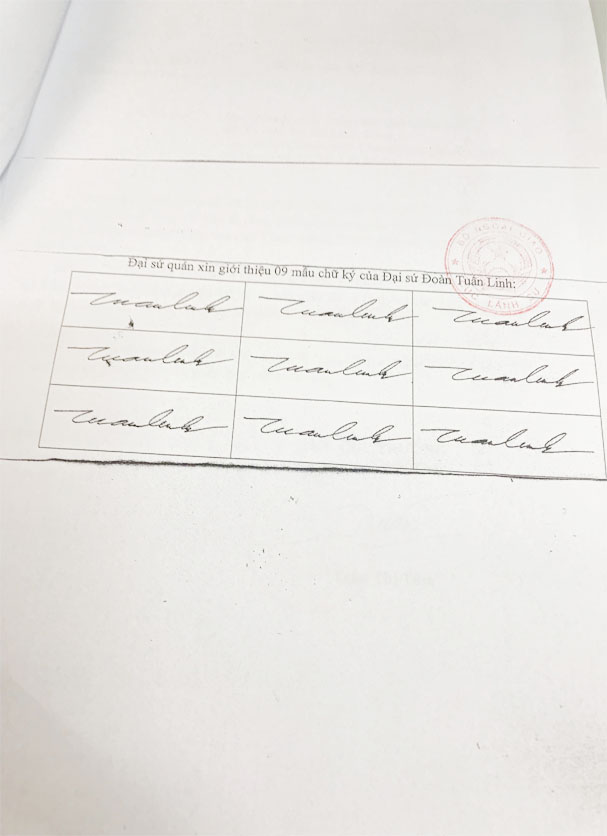 BỘ NGOẠI GIAO
Đại sứ quán xin giới thiệu 09 mẫu chữ ký của Đại sứ Đoàn Tuấn Linh:
Tuanlinh Tuanlinh Tuanlinh
Tuanlinh Tuanlinh Tuanlinh
Tuanlinh Tuanlinh Tuanlinh
LÃNH SỰ